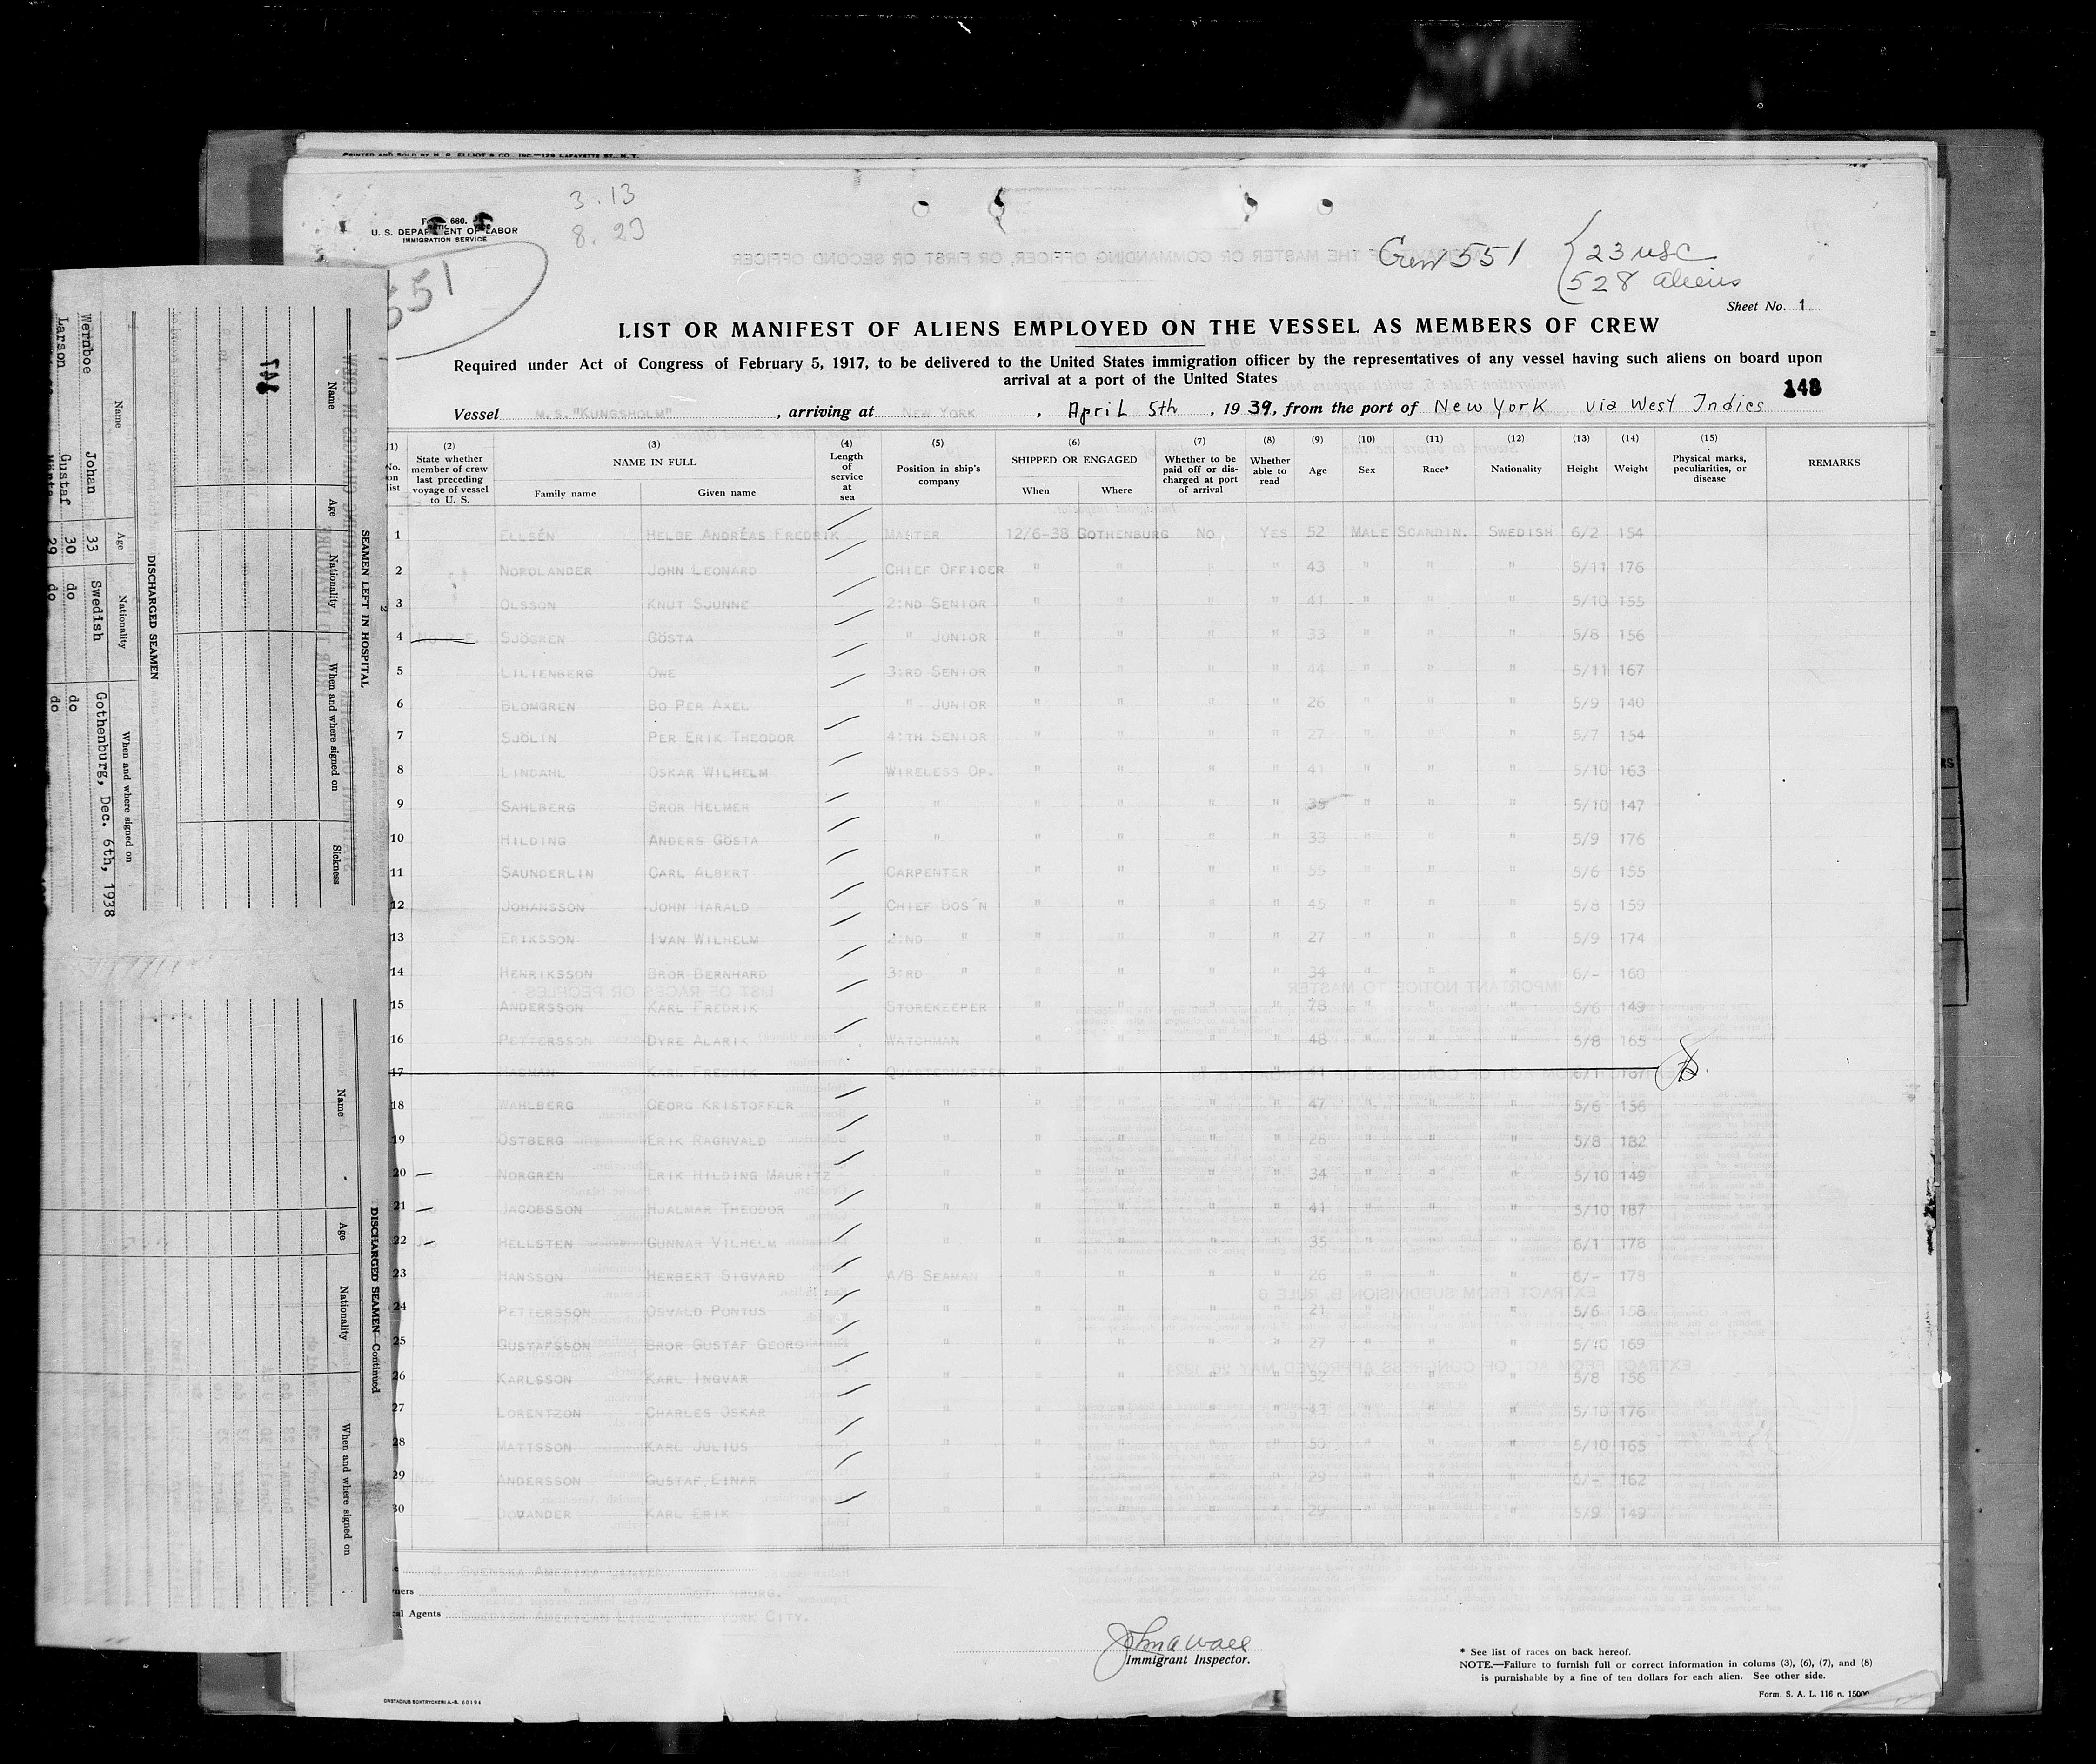 PRINTED AND SOLD BY H. R. ELLIOT & CO., INC.—129 LAFAYETTE ST., N. Y.
3.13
8.23
680.
U. S. DEPARTMENT OF LABOR
IMMIGRATION SERVICE
551
Crew 551 { 23 USC
528 aliens
Sheet No. 1
LIST OR MANIFEST OF ALIENS EMPLOYED ON THE VESSEL AS MEMBERS OF CREW
Required under Act of Congress of February 5, 1917, to be delivered to the United States immigration officer by the representatives of any vessel having such aliens on board upon
arrival at a port of the United States
148
Vessel M.S. "KUNGSHOLM", arriving at NEW YORK, April 5th, 1939, from the port of New York via West Indies
(1) No. on list (2) State whether member of crew last preceding voyage of vessel to U. S. (3) NAME IN FULL Family name Given name (4) Length of service at sea (5) Position in ship's company (6) SHIPPED OR ENGAGED When Where (7) Whether to be paid off or discharged at port of arrival (8) Whether able to read (9) Age (10) Sex (11) Race* (12) Nationality (13) Height (14) Weight (15) Physical marks, peculiarities, or disease REMARKS
1 ELLSÉN HELGE ANDRÉAS FREDRIK MASTER 12/6-38 GOTHENBURG NO YES 52 MALE SCANDIN. SWEDISH 6/2 154
2 NORDLANDER JOHN LEONARD CHIEF OFFICER " " " " 43 " " " 5/11 176
3 OLSSON KNUT SJUNNE 2:ND SENIOR " " " " 41 " " " 5/10 155
4 SJÖGREN GÖSTA " JUNIOR " " " " 33 " " " 5/8 156
5 LILIENBERG OWE 3:RD SENIOR " " " " 44 " " " 5/11 167
6 BLOMGREN BO PER AXEL " JUNIOR " " " " 26 " " " 5/9 140
7 SJÖLIN PER ERIK THEODOR 4:TH SENIOR " " " " 27 " " " 5/7 154
8 LINDAHL OSKAR WILHELM WIRELESS OP. " " " " 41 " " " 5/10 163
9 SAHLBERG BROR HELMER " " " " " " " " 5/10 147
10 HILDING ANDERS GÖSTA " " " " " 33 " " " 5/9 176
11 SAUNDERLIN CARL ALBERT CARPENTER " " " " 55 " " " 5/6 155
12 JOHANSSON JOHN HARALD CHIEF BOS'N " " " " 45 " " " 5/8 159
13 ERIKSSON IVAN WILHELM 2:ND " " " " " 27 " " " 5/9 174
14 HENRIKSSON BROR BERNHARD 3:RD " " " " " 34 " " " 6/- 160
15 ANDERSSON KARL FREDRIK STOREKEEPER " " " " " " " 5/6 149
16 PETTERSSON DYRE ALARIK WATCHMAN " " " " 48 " " " 5/8 165
17 KARL FREDRIK QUARTERMASTER
18 WAHLBERG GEORG KRISTOFFER " " " " " 47 " " " 5/6 156
19 ÖSTBERG ERIK RAGNVALD " " " " " 26 " " " 5/8 182
20 NORGREN ERIK HILDING MAURITZ " " " " " 34 " " " 5/10 149
21 JACOBSSON HJALMAR THEODOR " " " " " 41 " " " 5/10 187
22 HELLSTEN GUNNAR VILHELM " " " " " 35 " " " 6/1 178
23 HANSSON HERBERT SIGVARD A/B SEAMAN " " " " 26 " " " 6/- 178
24 PETTERSSON OSVALD PONTUS " " " " " 21 " " " 5/6 168
25 GUSTAFSSON BROR GUSTAF GEORG " " " " " 27 " " " 5/10 169
26 KARLSSON KARL INGVAR " " " " " 32 " " " 5/8 156
27 LORENTZON CHARLES OSKAR " " " " " 43 " " " 5/10 176
28 MATTSSON KARL JULIUS " " " " " 50 " " " 5/10 165
29 ANDERSSON GUSTAF EINAR " " " " " 29 " " " 6/- 162
30 KARL ERIK " " " " " 29 " " " 5/9 149
SVENSKA AMERIKA LINIEN
GOTHENBURG.
Agents SWEDISH AMERICAN LINE, NEW YORK CITY.
John A Wall
Immigrant Inspector.
* See list of races on back hereof.
NOTE.—Failure to furnish full or correct information in colums (3), (6), (7), and (8)
is purnishable by a fine of ten dollars for each alien. See other side.
Form. S. A. L. 116 n. 15000
SEAMEN LEFT IN HOSPITAL
Name Age Nationality When and where signed on Sickness
DISCHARGED SEAMEN
Name Age Nationality When and where signed on
Wernboe Johan 33 Swedish Gothenburg, Dec. 6th, 1938
Larson Gustaf 30 do do
29 do do
DISCHARGED SEAMEN—Continued
Name Age Nationality When and where signed on